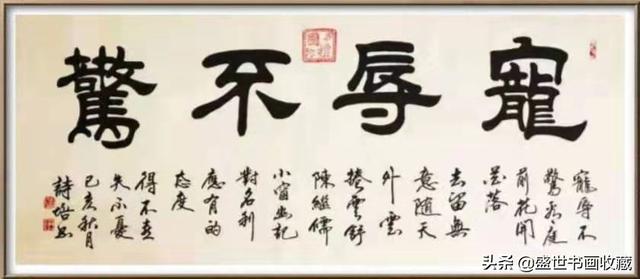 寵辱不驚
寵辱不
驚看庭
前花開
花落
去留無
意随天
外雲
捲雲舒
陳繼儒
小窗幽記
對名利
應有的
态度
得不喜
失不憂
己亥秋月
头条 @盛世书画收藏